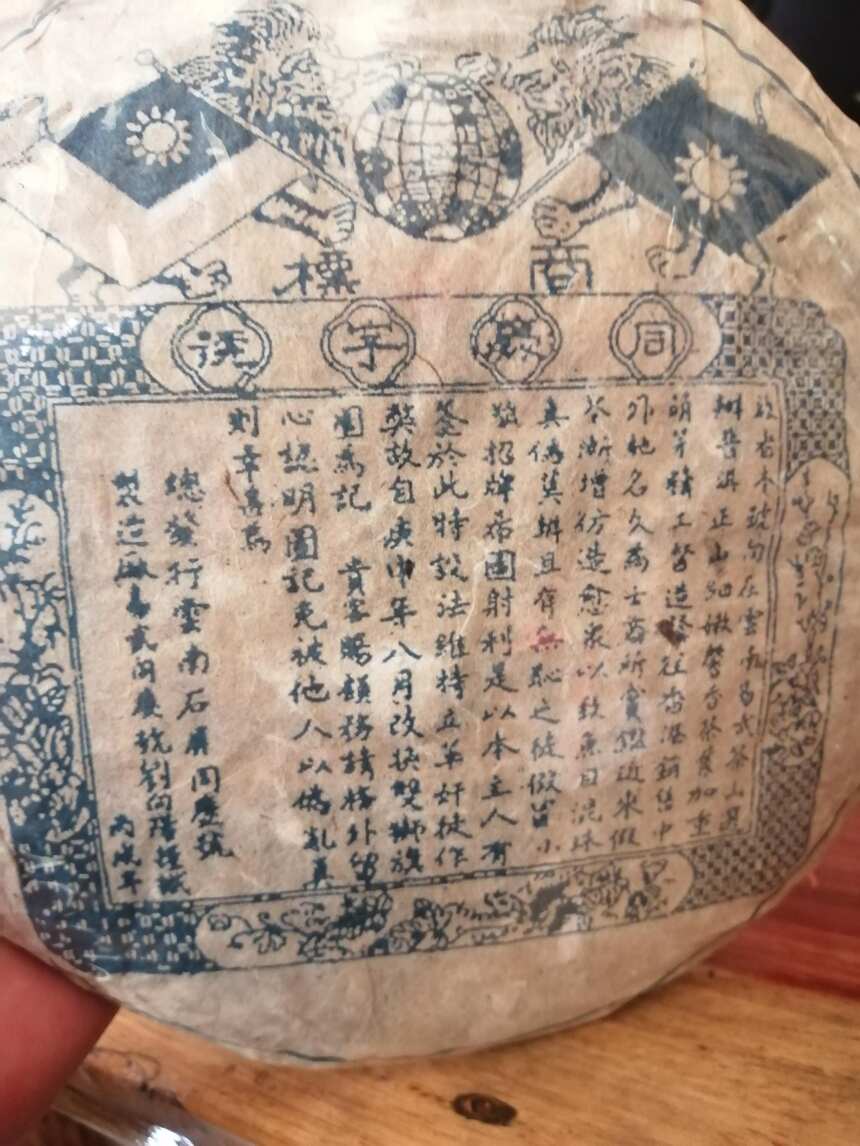 商標
同慶字號
啟者本號向在雲南易武茶山選
辦普洱正山細嫩馨香茶葉加重
萌芽精工督造發往香港銷售中
外地名久為士商所賞鑑近來假
漸增仿造愈衆以致魚目混珠
真偽莫辦且有無恥之徒假冒小
號招牌希圖射利是以本主人有
鑒於此特設法維持立革奸徒作
弊故自庚申年八月改換雙獅旗
圖為記　貴客賜顧務請格外留
心認明圖記免被他人以偽亂真
則幸甚焉
總發行雲南石屏同慶號
製造廠易武同慶號劉向陽謹識
丙戌年